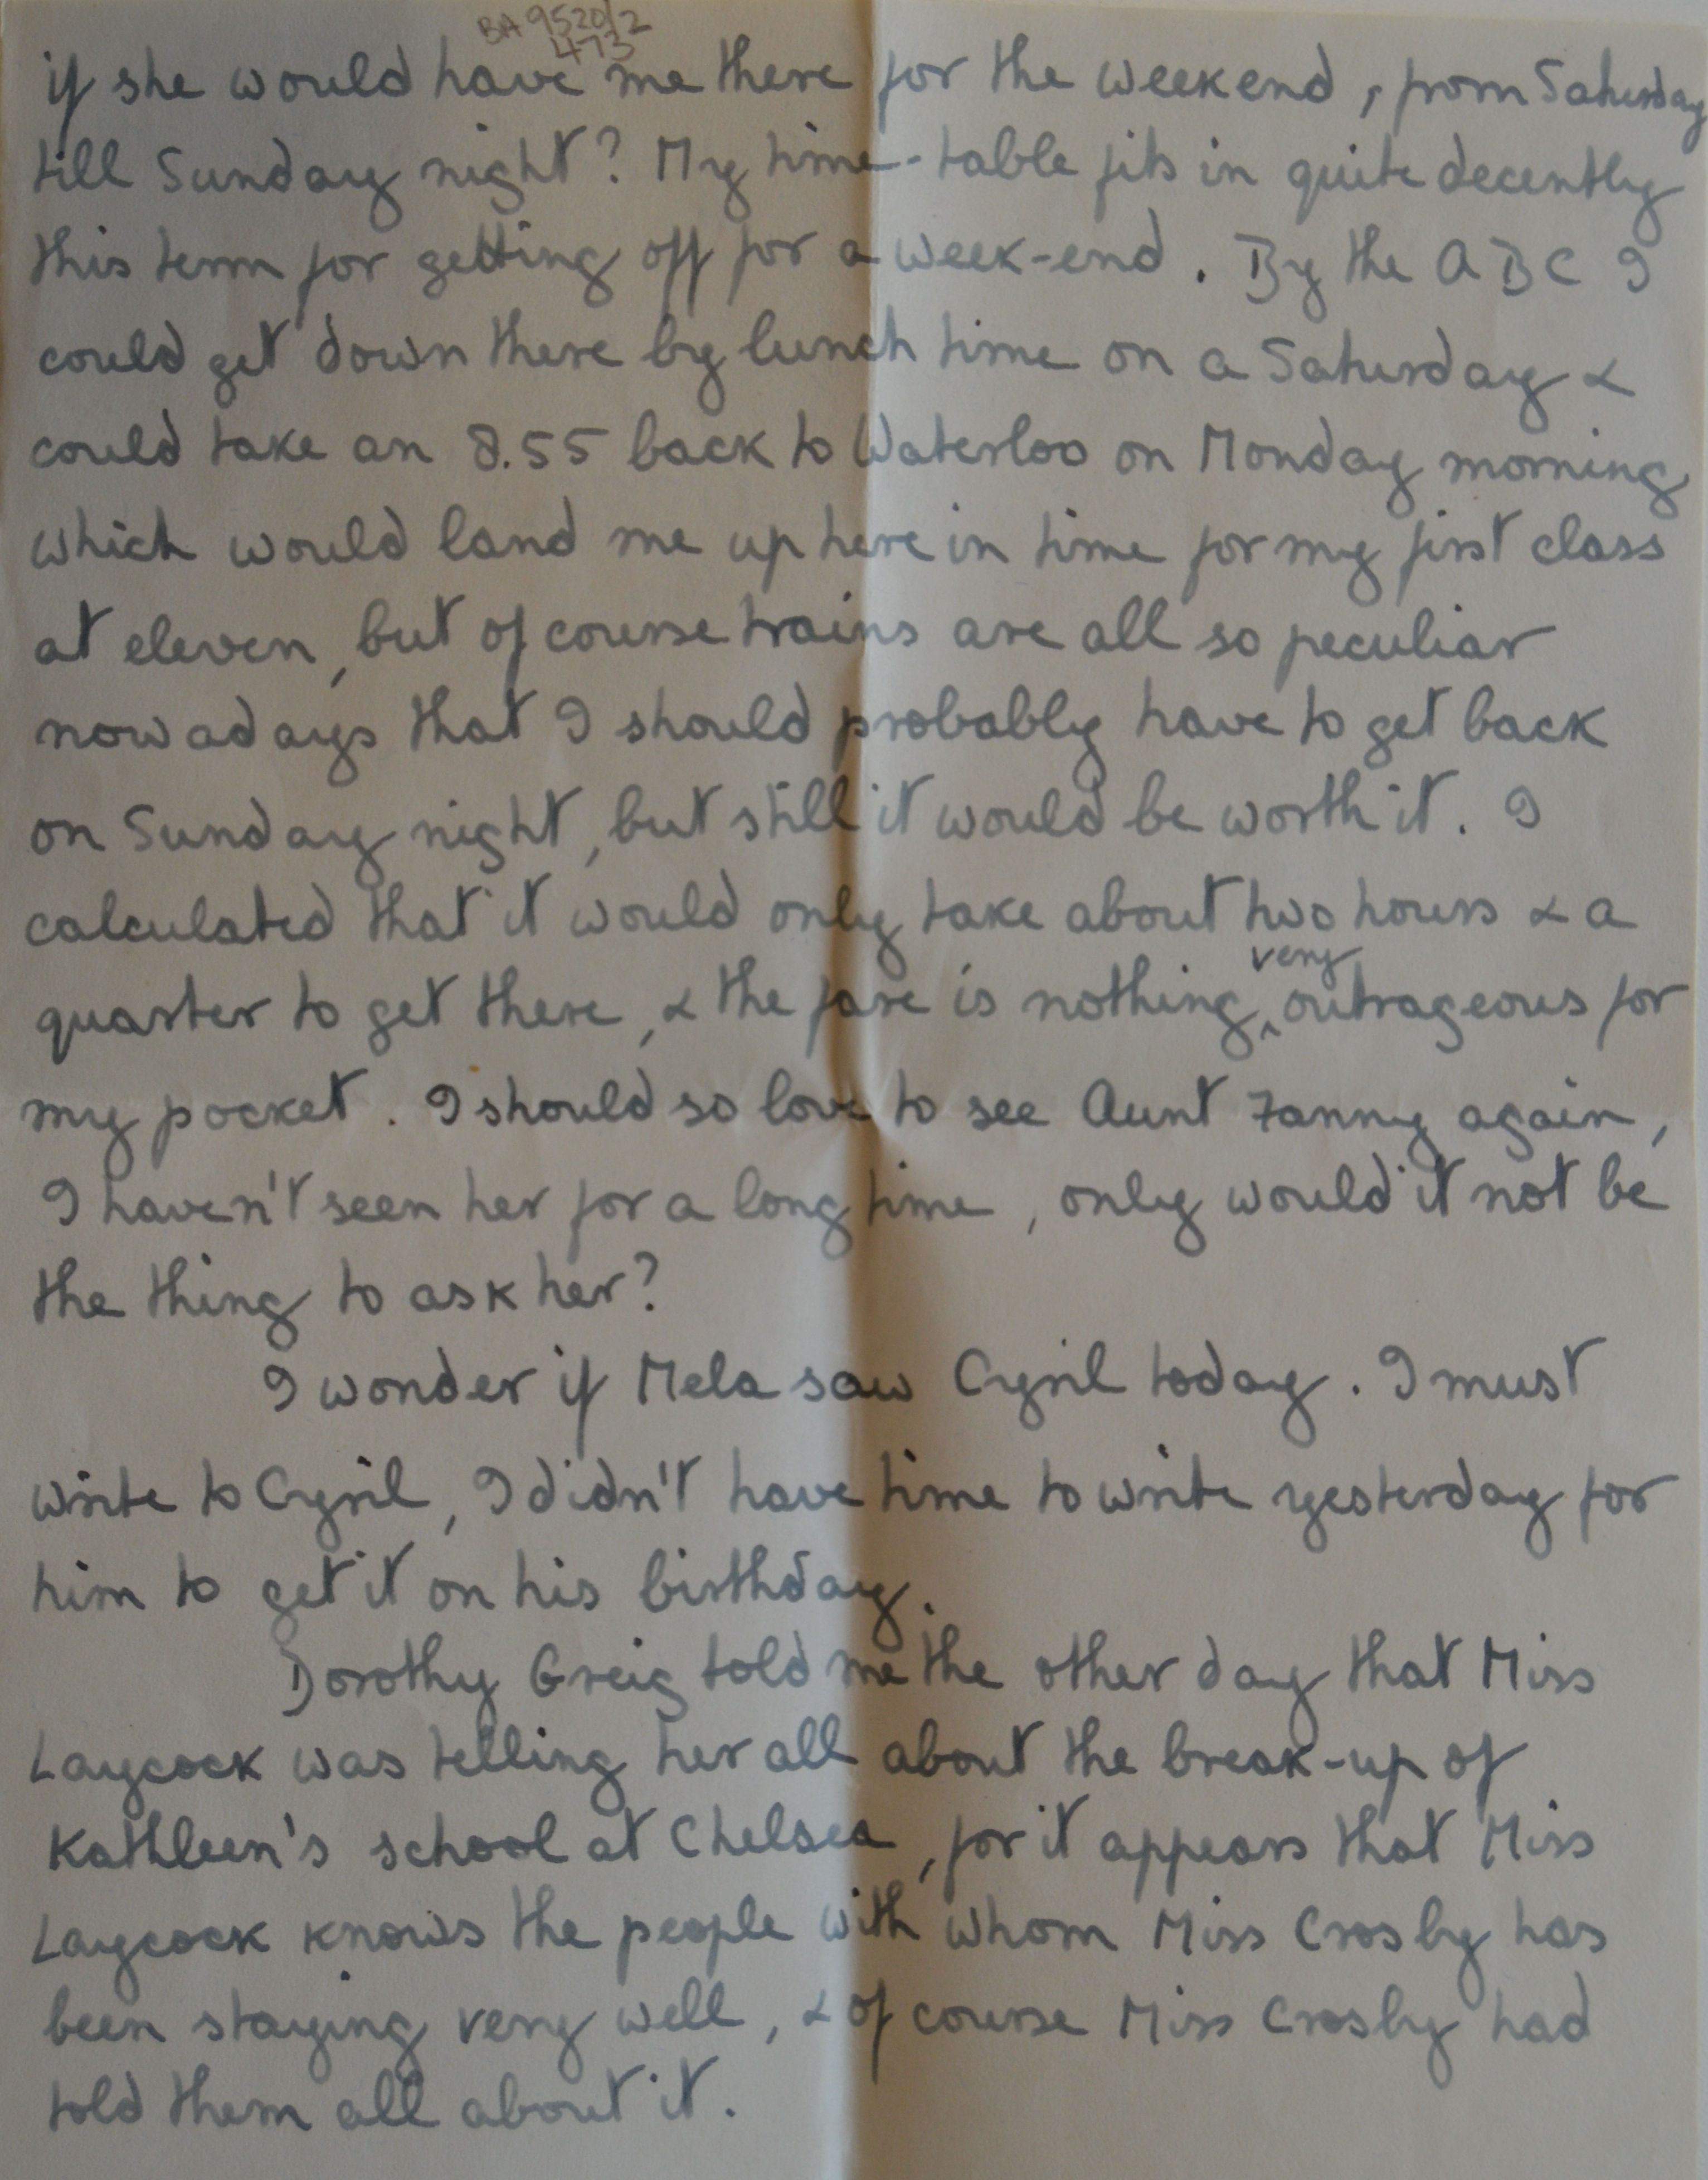 BA 9520/2
473
if she would have me there for the weekend, from Saturday
till Sunday night? My time-table fits in quite decently
this term for getting off for a week-end. By the ABC I
could get down there by lunch time on a Saturday &
could take an 8.55 back to Waterloo on Monday morning
which would land me up here in time for my first class
at eleven, but of course trains are all so peculiar
nowadays that I should probably have to get back
on Sunday night, but still it would be worth it. I
calculated that it would only take about two hours & a
very
quarter to get there, & the fare is nothing ^ outrageous for
my pocket. I should so love to see Aunt Fanny again,
I haven't seen her for a long time, only would it not be
the thing to ask her?
I wonder if Mela saw Cyril today. I must
write to Cyril, I didn't have time to write yesterday for
him to get it on his birthday.
Dorothy Greig told me the other day that Miss
Laycock was telling her all about the break-up of
Kathleen's school at Chelsea, for it appears that Miss
Laycock knows the people with whom Miss Crosby has
been staying very well, & of course Miss Crosby had
told them all about it.